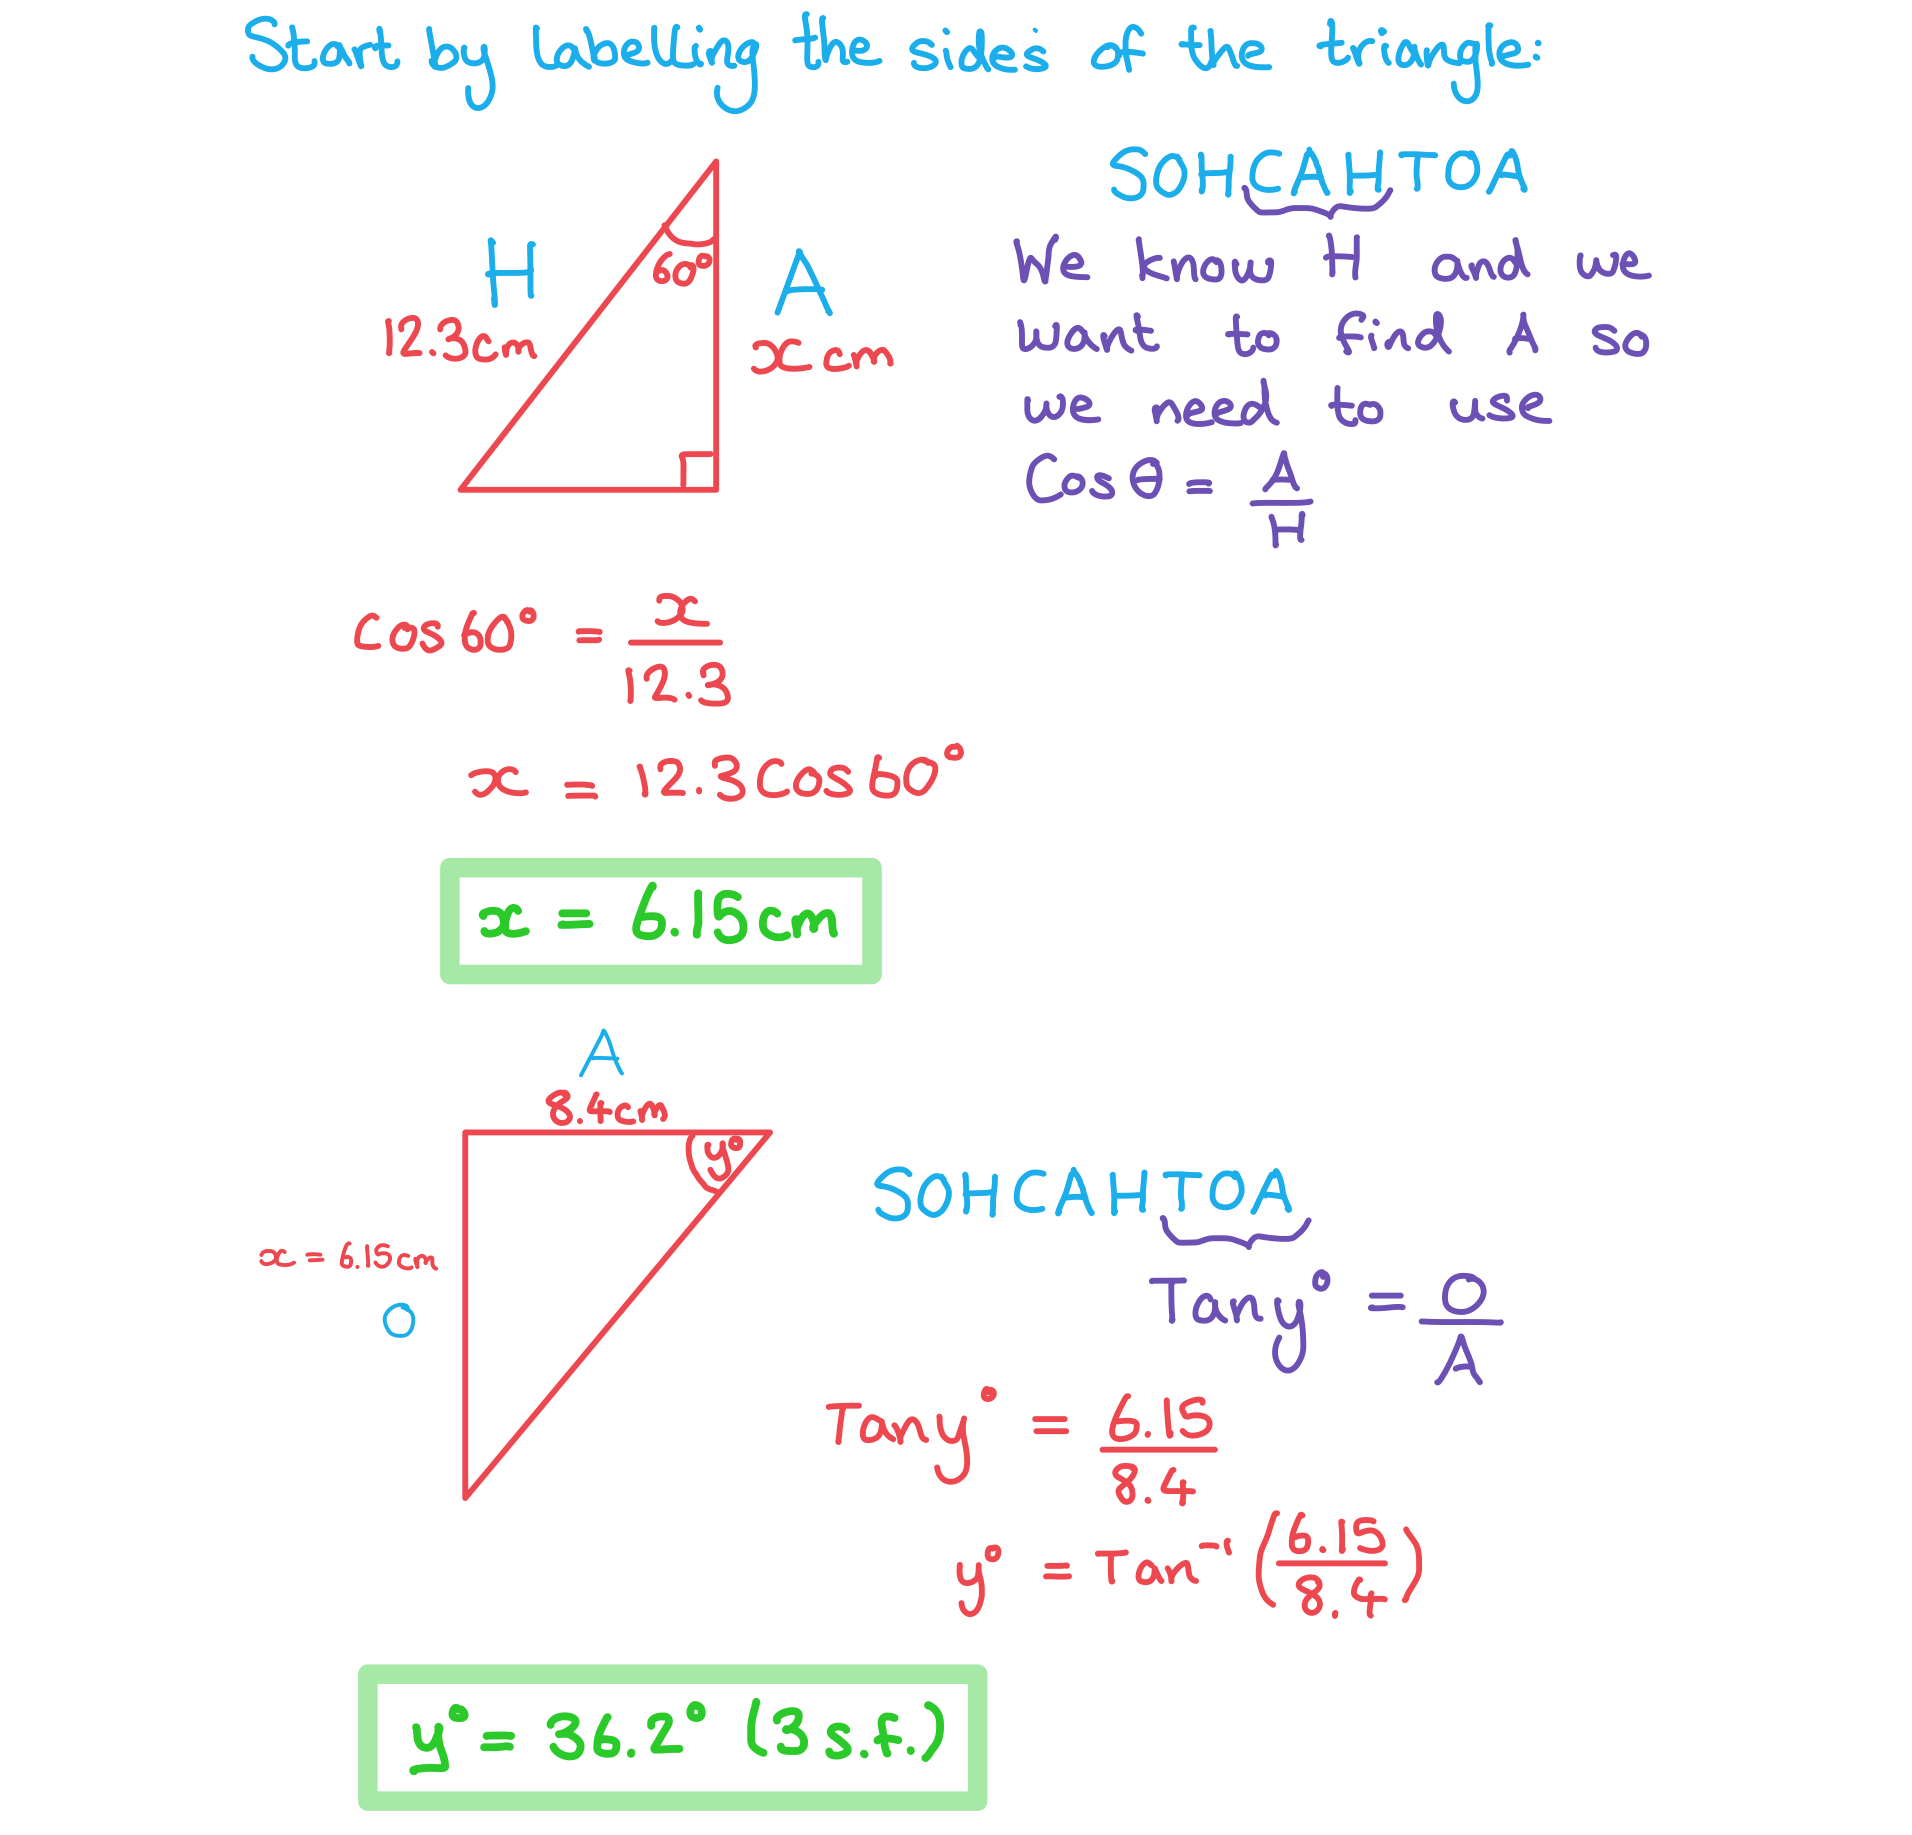 Start by labelling the sides of the triangle:
SOHCAHTOA
H
12.3cm
60°
A
x cm
We know H and we
want to find A so
we need to use
Cos θ = A/H
Cos60° = x/12.3
x = 12.3Cos60°
x = 6.15cm
A
8.4cm
y°
x = 6.15cm
O
SOHCAHTOA
Tany° = O/A
Tany° = 6.15/8.4
y° = Tan⁻¹(6.15/8.4)
y° = 36.2° (3 s.f.)